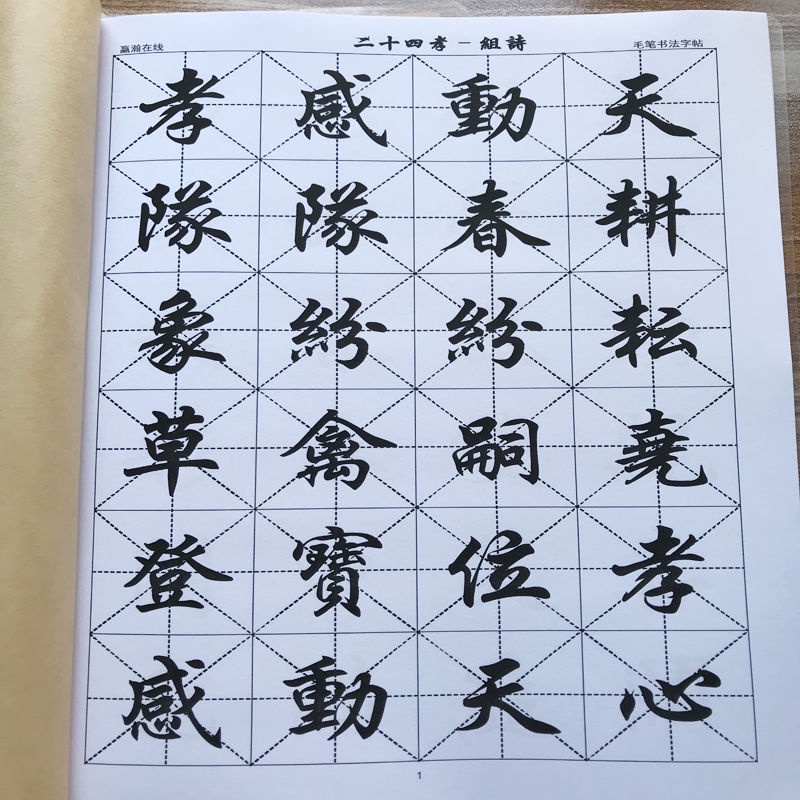 赢瀚在线 二十四孝-組詩 毛笔书法字帖
孝感動天
隊隊春耕
象紛紛耘
草禽嗣堯
登寶位孝
感動天心
1